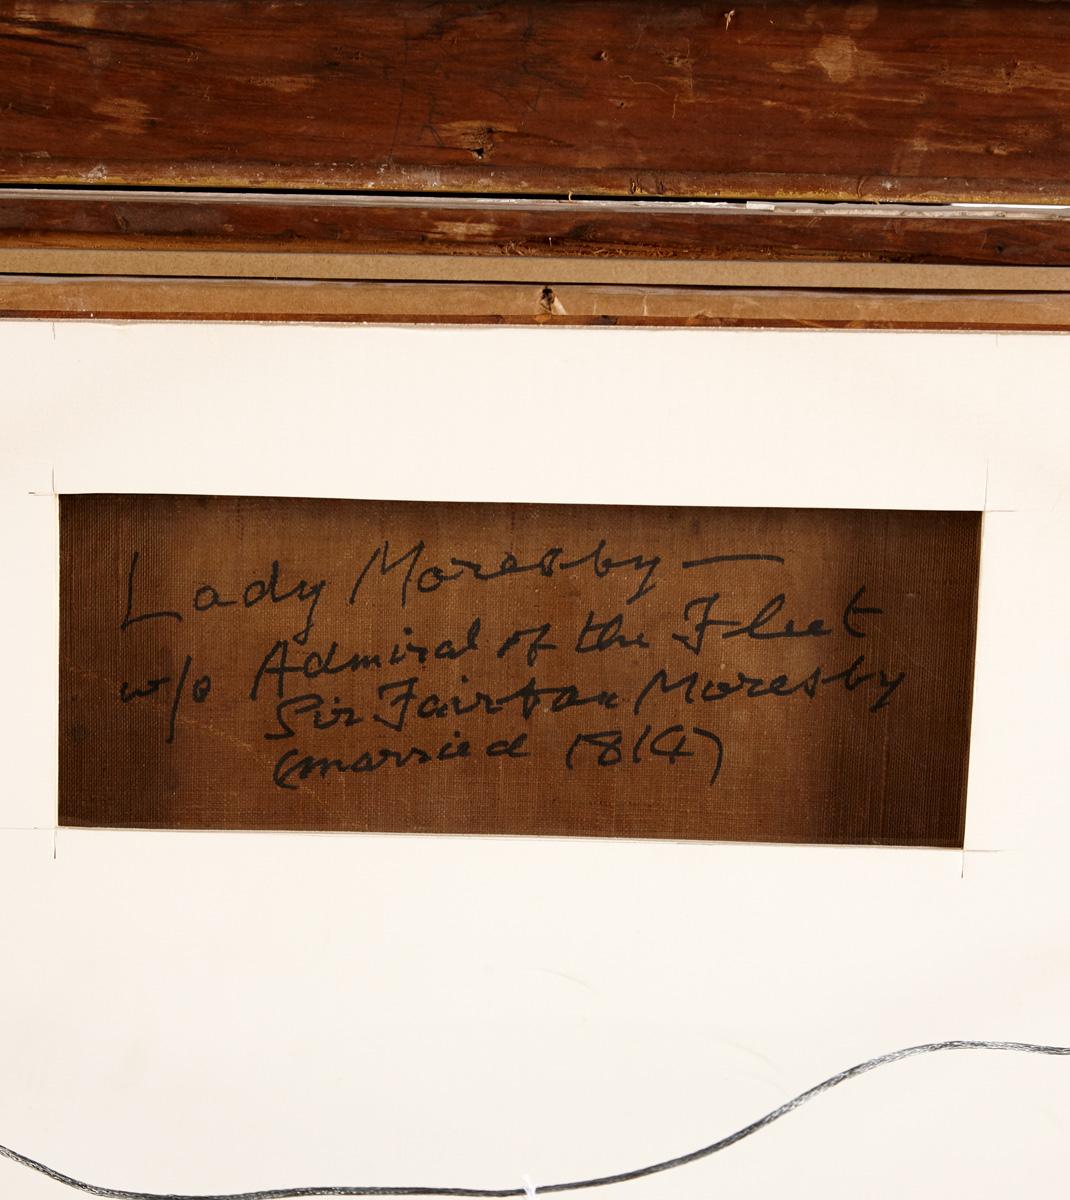 Lady Moresby —
w/o Admiral of the Fleet
Sir Fairfax Moresby
(married 1814)